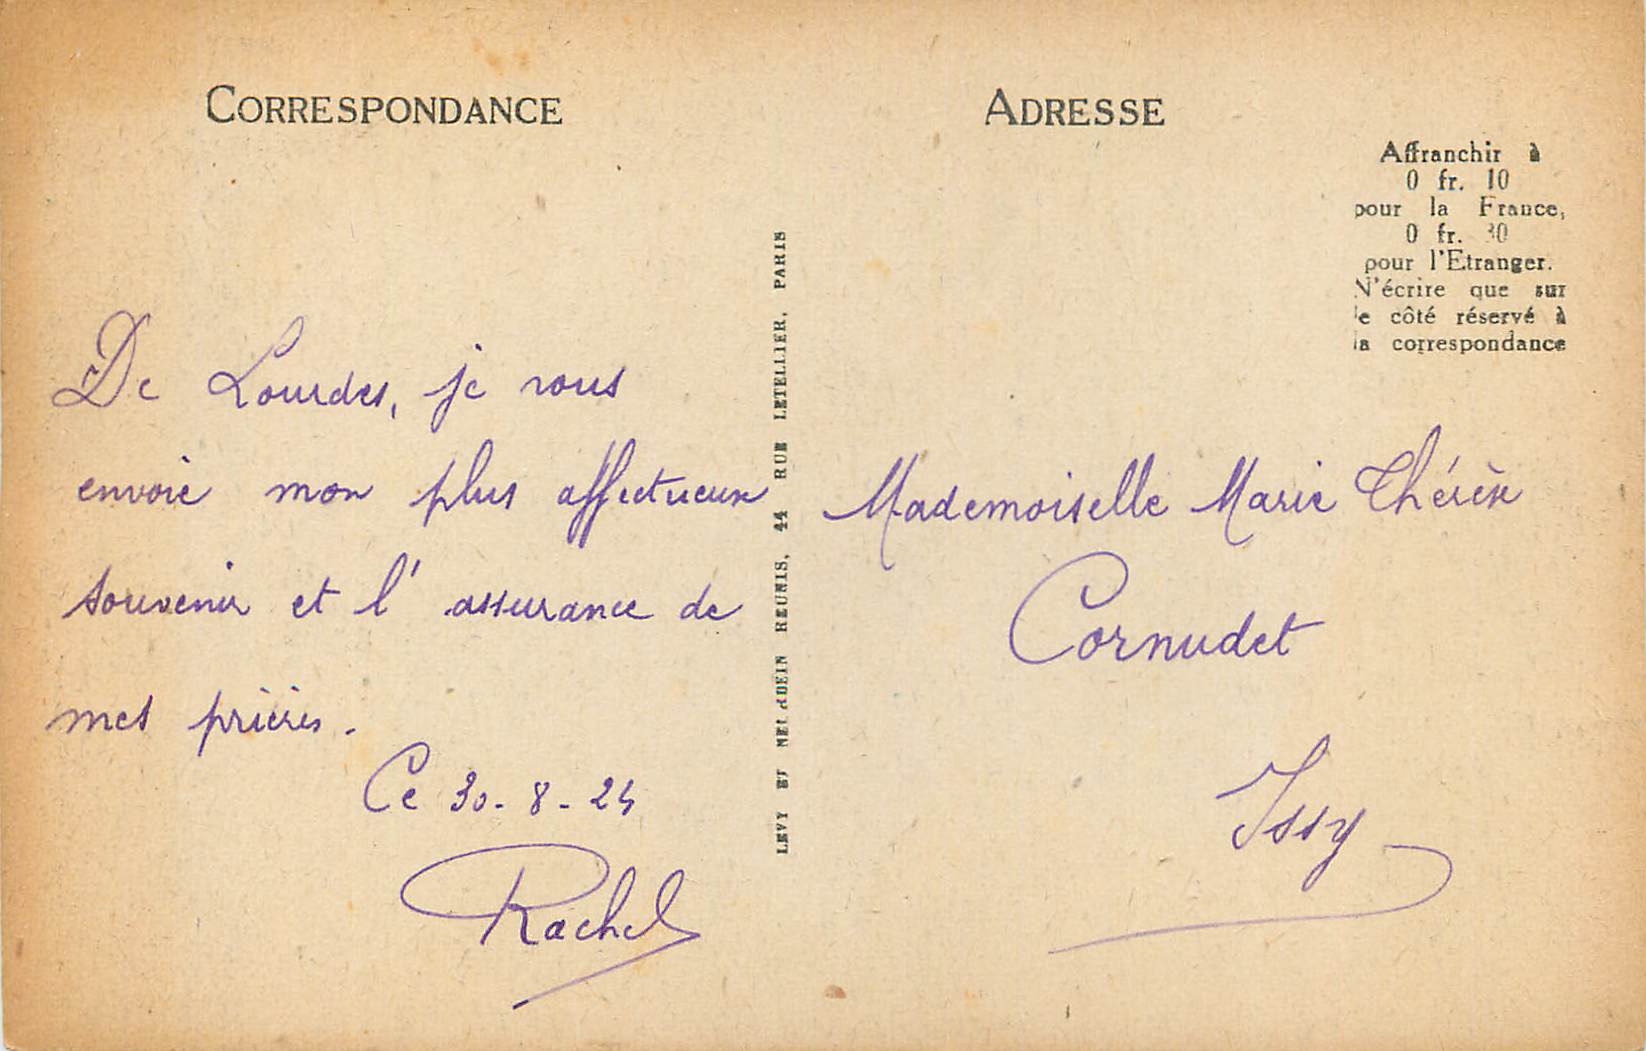 CORRESPONDANCE
De Lourdes, je vous
envoie mon plus affectueux
souvenir et l'assurance de
mes prières.
Ce 30-8-24
Rachel
LEVY ET NEURDEIN REUNIS, 44 RUE LETELLIER, PARIS
ADRESSE
Affranchir à
0 fr. 10
pour la France,
0 fr. 30
pour l'Etranger.
N'écrire que sur
le côté réservé à
la correspondance
Mademoiselle Marie Thérèse
Cornudet
Issy